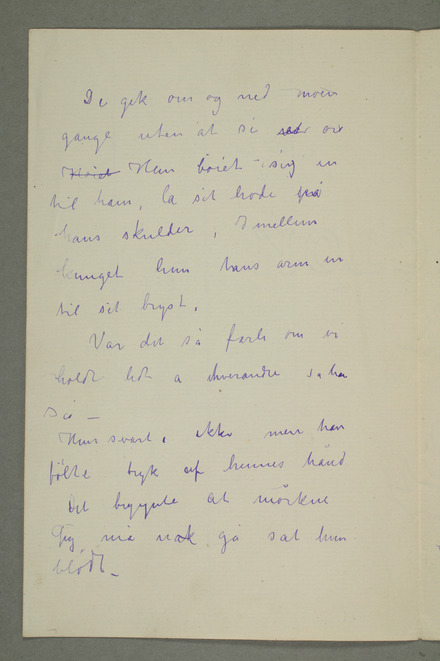 De gik om og ned noen
gange uten at si et or
Hun böiet sig in
til ham, la sit hode på
hans skulder, Imellem
hun hans arm in
til sit bryst.
Var det så farli om vi
holdt lidt a hverandre sa han
Sa –
Hun svart, ikke men han
fölte tryk af hennes hånd
Det begynte at mörkne
Jeg må nok gå sat hun
blödt –